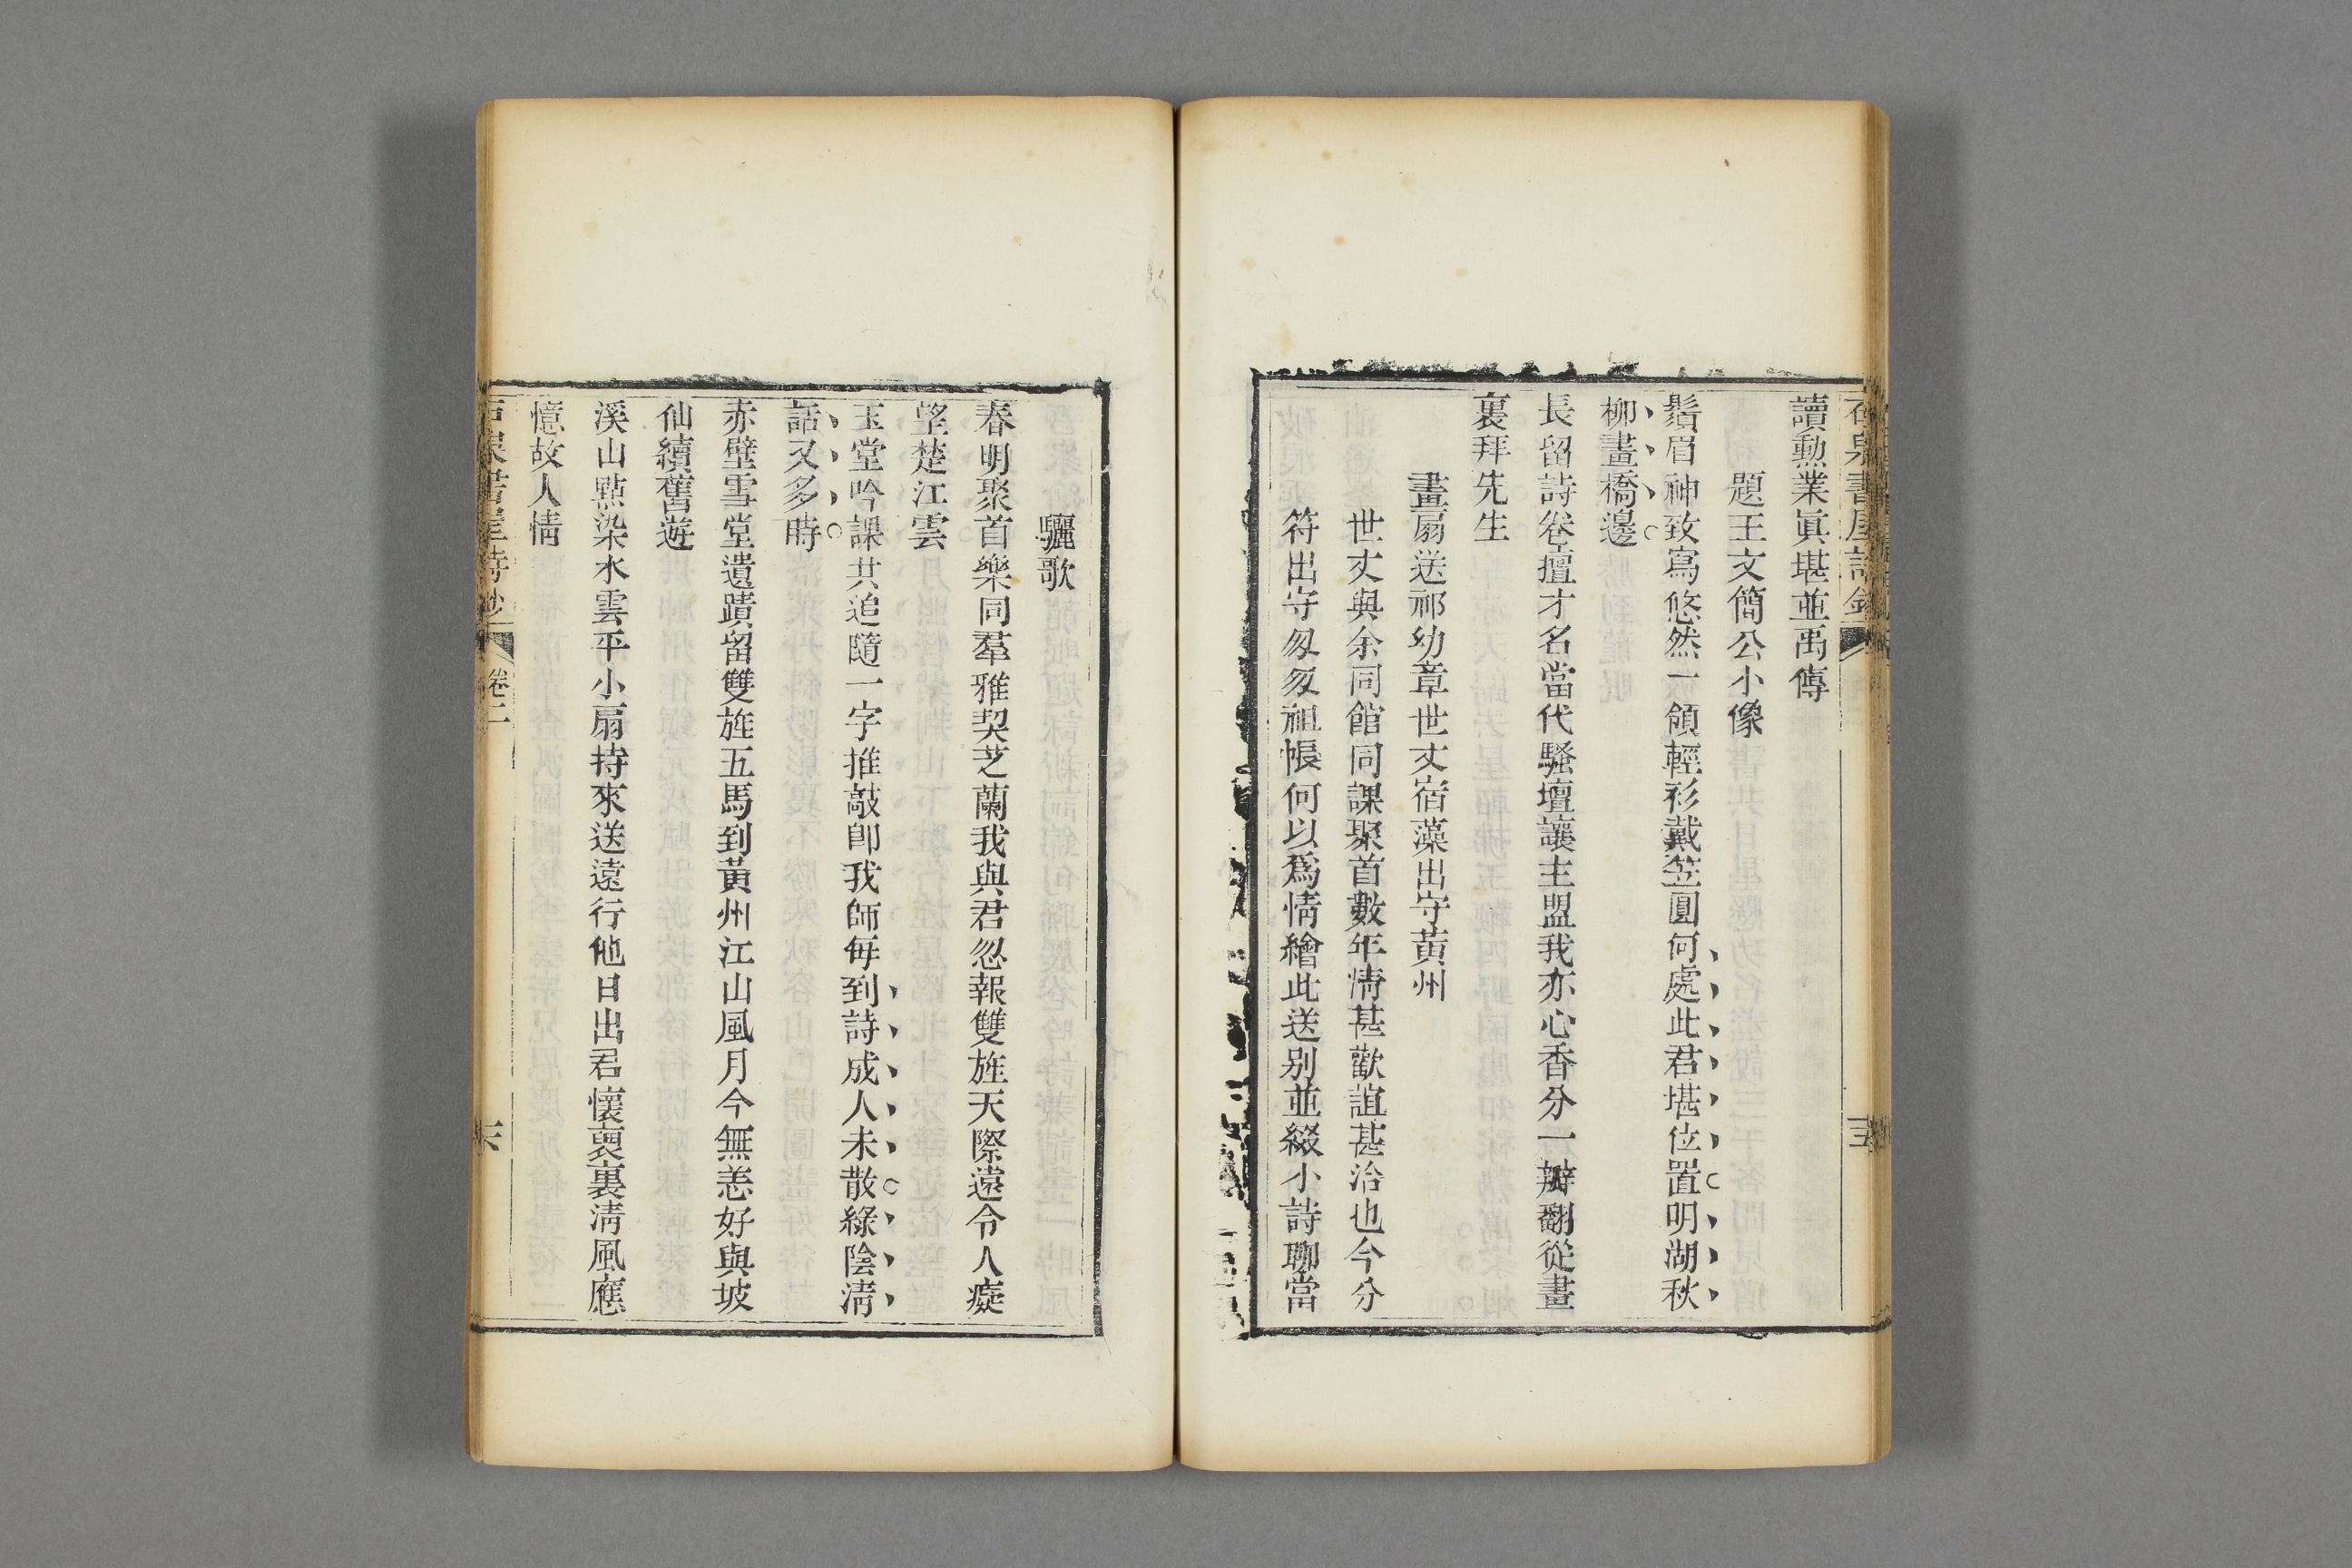 讀勲業眞堪並禹傳
題王文簡公小像
鬚眉神致寫悠然一領輕衫戴笠圓何處此君堪位置明湖秋
柳畫橋邊
長留詩卷擅才名當代騷壇讓主盟我亦心香分一瓣翻從畫
裏拜先生
畫扇送祁幼章世丈宿藻出守黃州
世丈與余同館同課聚首數年情甚歡誼甚洽也今分
符出守匆匆祖帳何以爲情繪此送别並綴小詩聊當
驪歌
春明聚首樂同羣雅契芝蘭我與君忽報雙旌天際遠令人癡
望楚江雲
玉堂吟課共追隨一字推敲卽我師每到詩成人未散綠陰淸
話又多時
赤壁雪堂遺蹟留雙旌五馬到黃州江山風月今無恙好與坡
仙續舊遊
溪山點染水雲平小扇持來送遠行他日出君懷褱裏淸風應
憶故人情
卷二